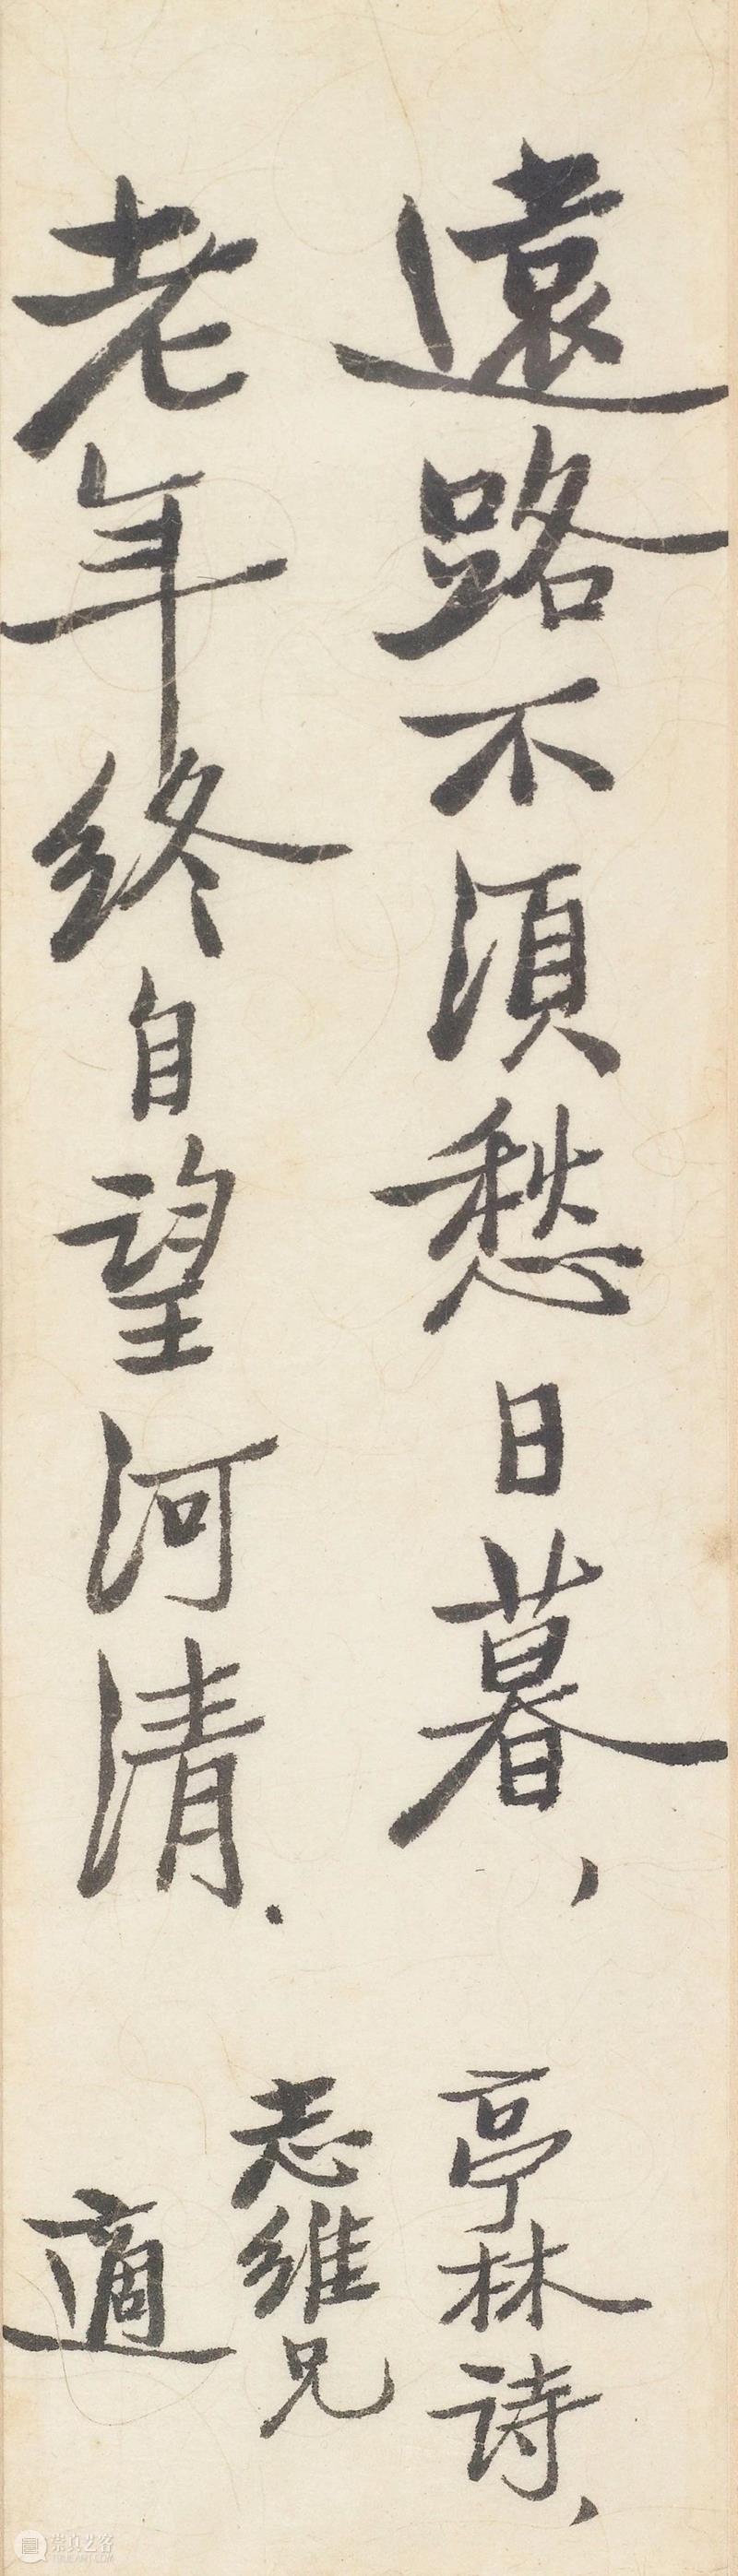 遠路不須愁日暮，
老年終自望河清．
亭林诗，
志維兄
適
崇真艺客